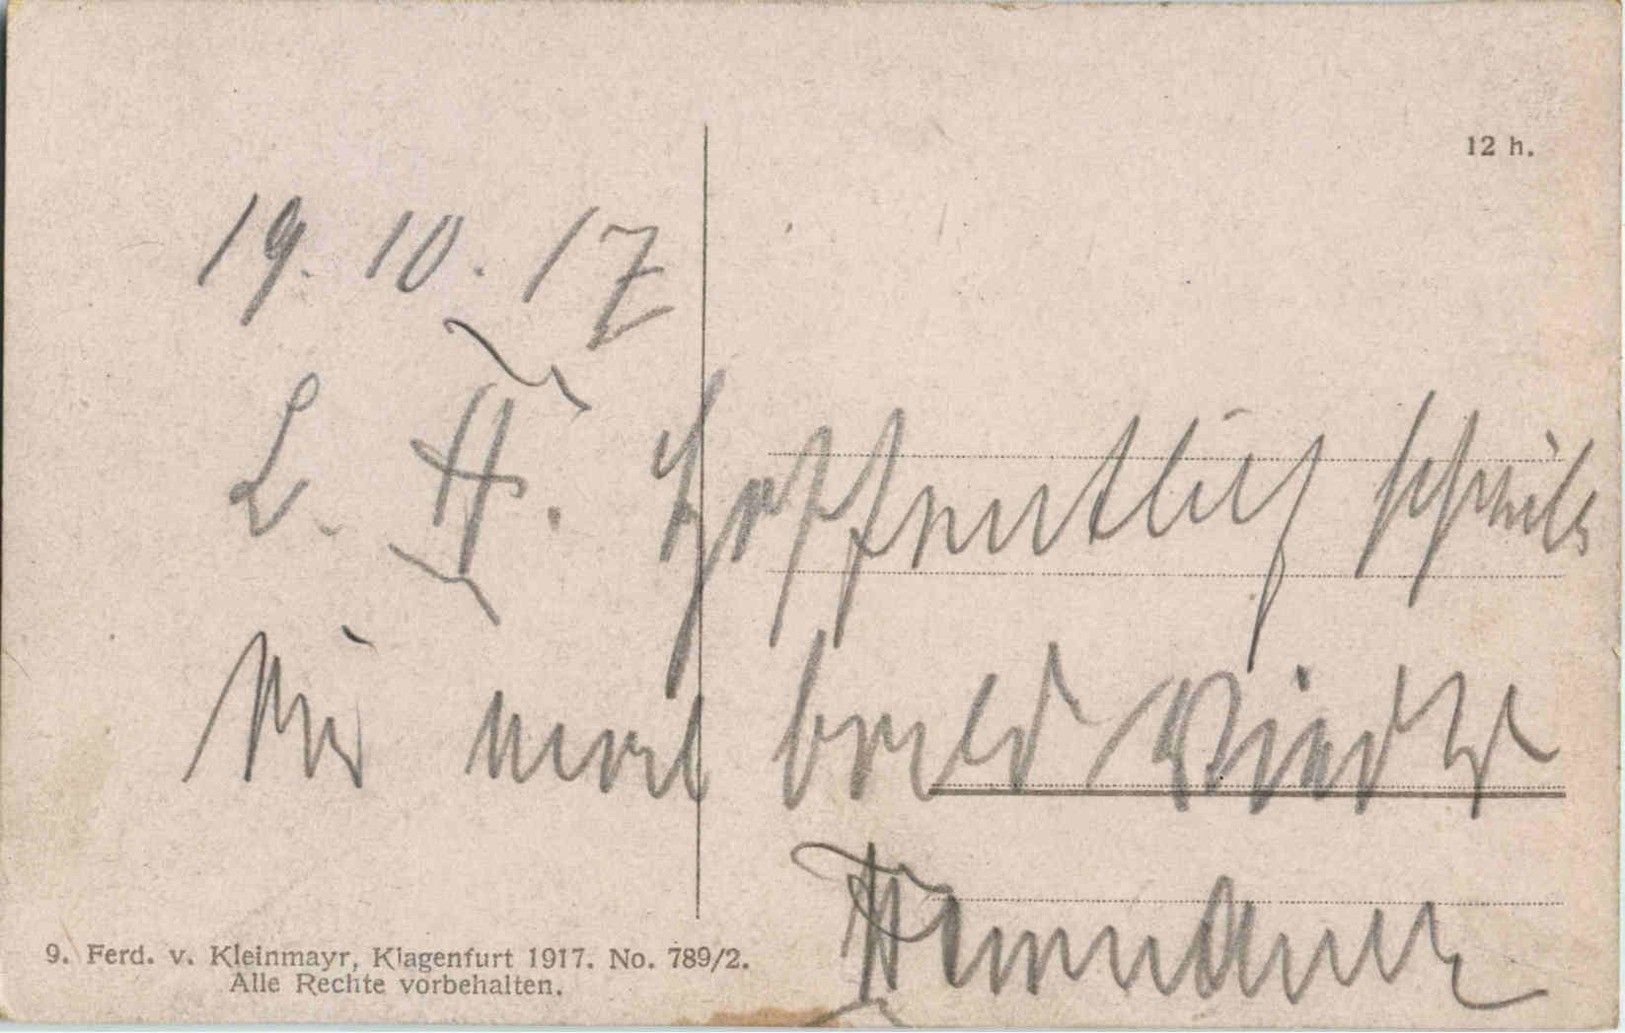 12 h.
19. 10. 17
L. H. Hoffentlich schreibst
Du mal bald wieder
9. Ferd. v. Kleinmayr, Klagenfurt 1917. No. 789/2.
Alle Rechte vorbehalten.